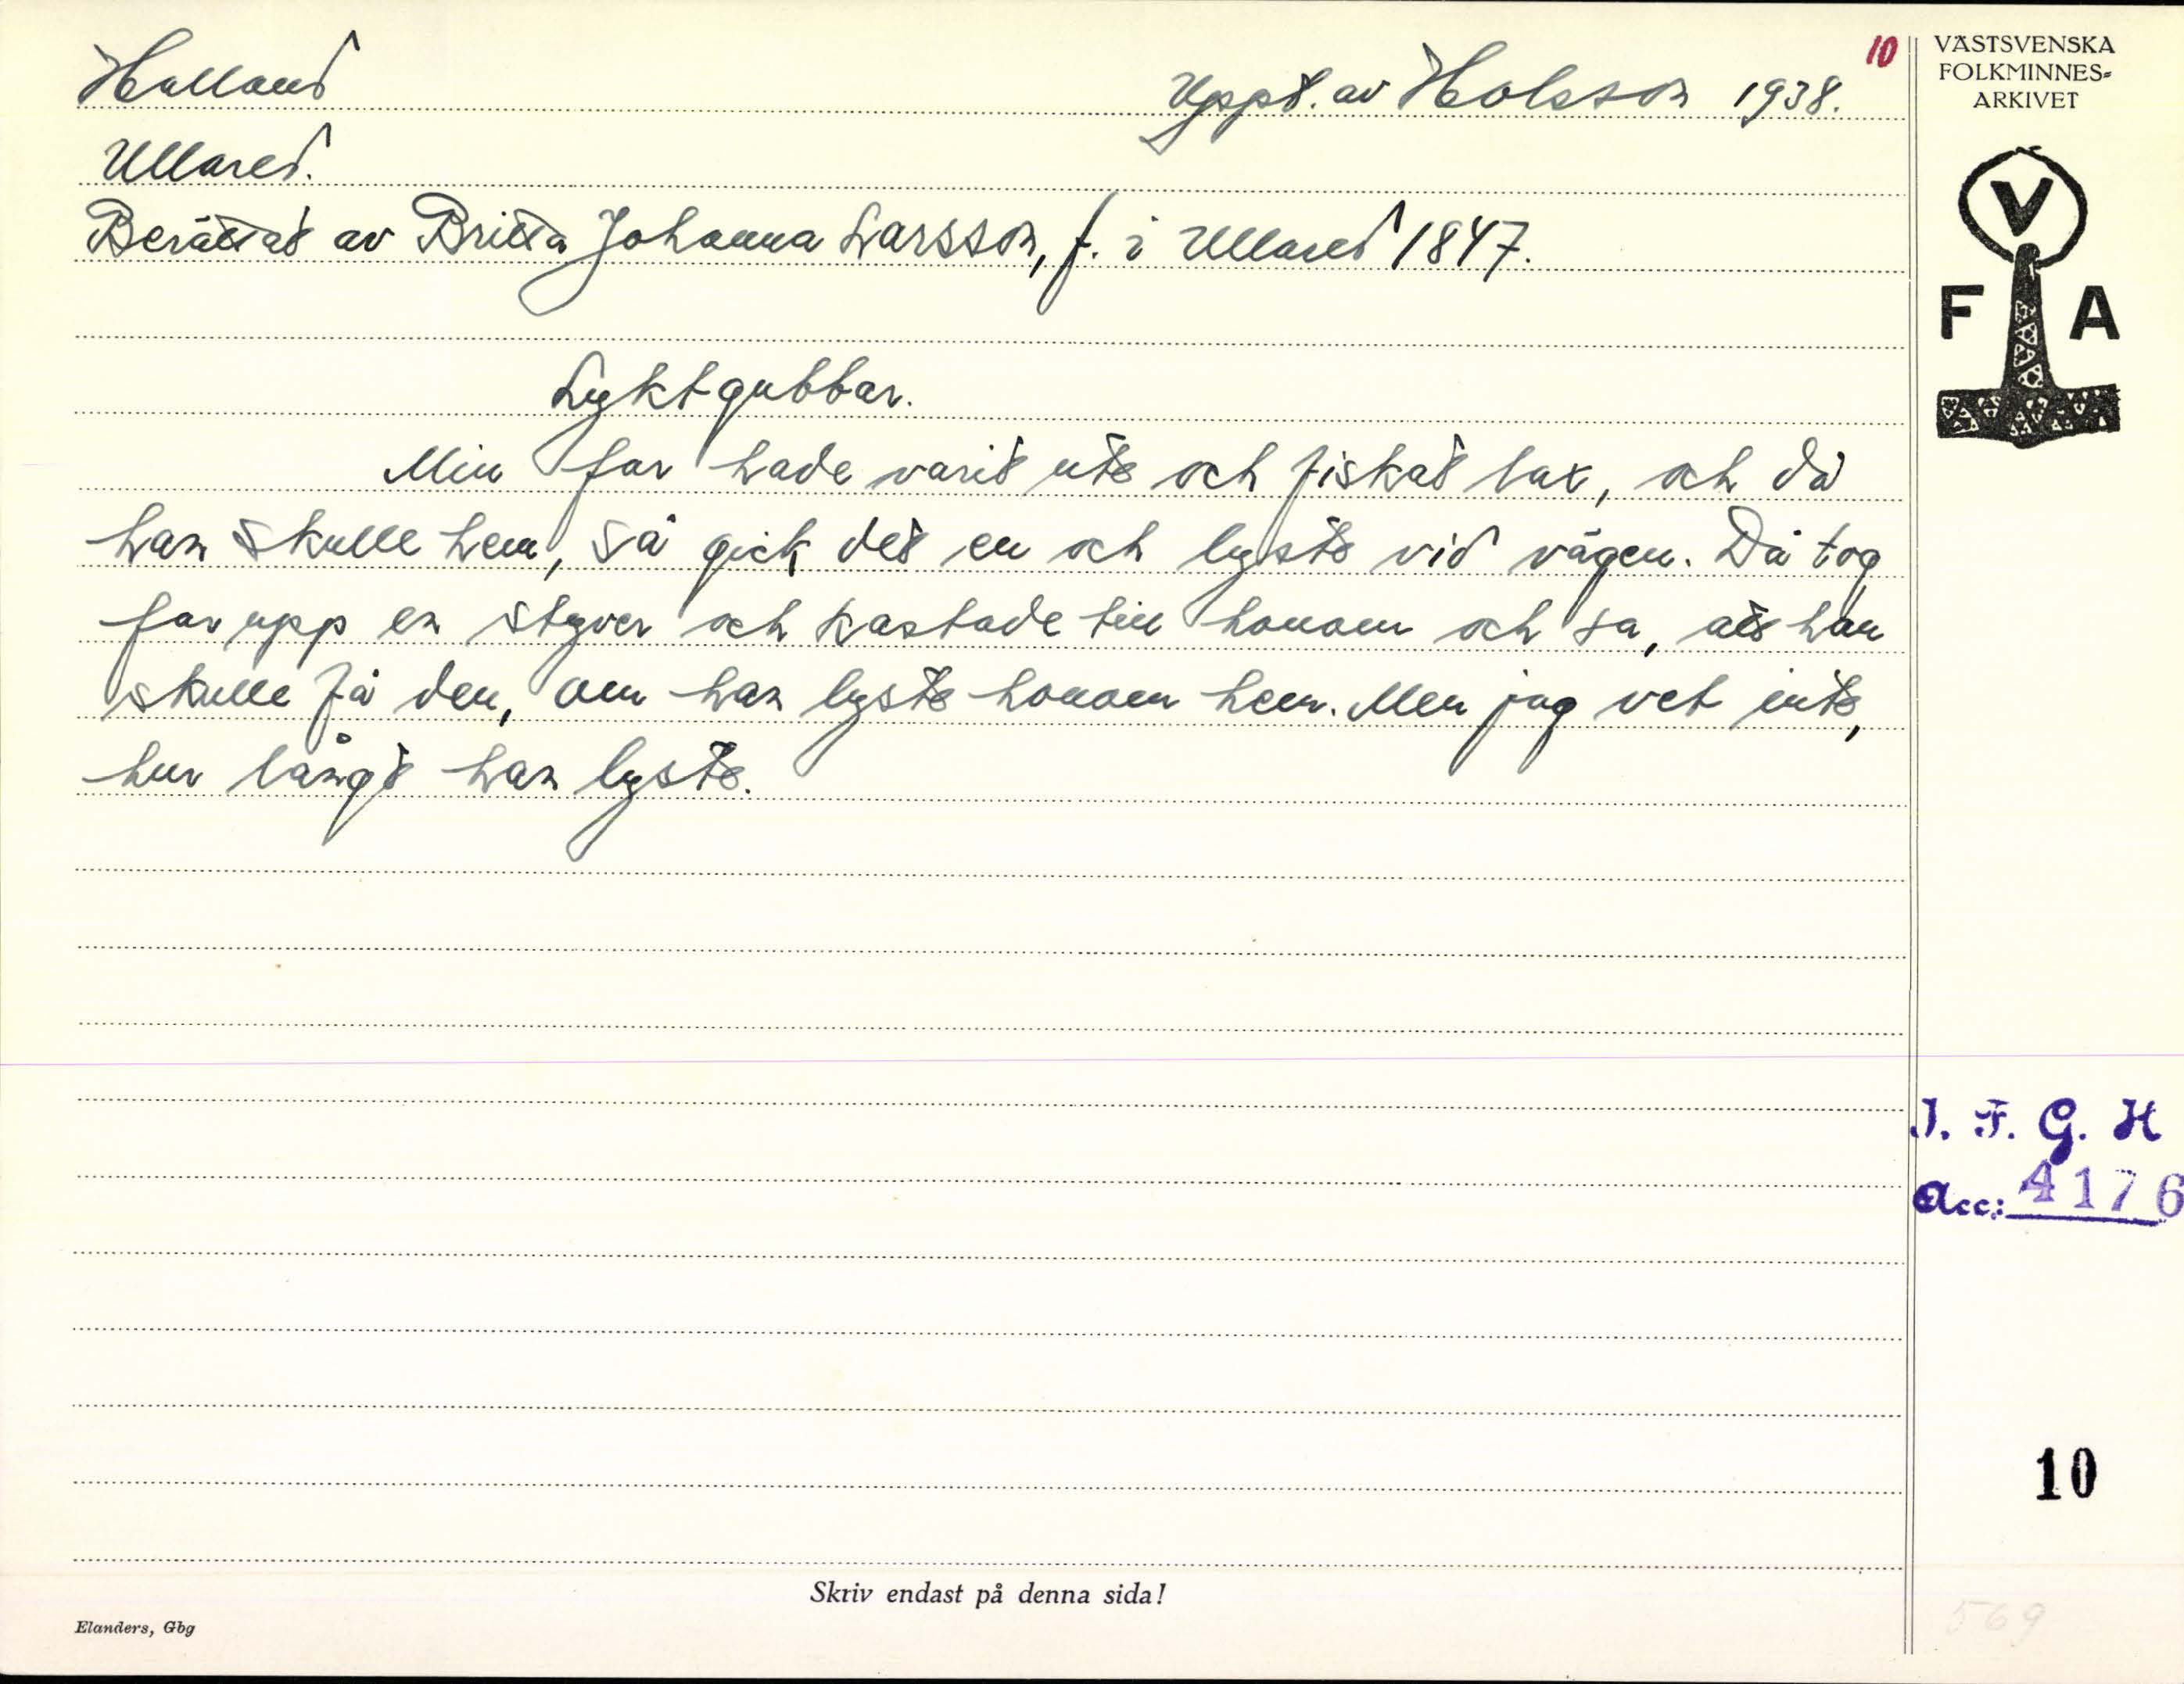 Halland
Uppt. av Holsson 1938.
10
Ullared.
Berättat av Britta Johanna Larsson, f. i Ullared 1847.
Lyktgubbar.
Min far hade varit ute och fiskat lax, och då
han skulle hem, så gick det en och lyste vid vägen. Då tog
far upp en styver och kastade till honom och sa, att han
skulle få den, om han lyste honom hem. Men jag vet inte,
hur långt han lyste.
VÄSTSVENSKA
FOLKMINNES=
ARKIVET
V
F A
I. F. G. H
Acc: 4176
10
569
Skriv endast på denna sida!
Elanders, Gbg